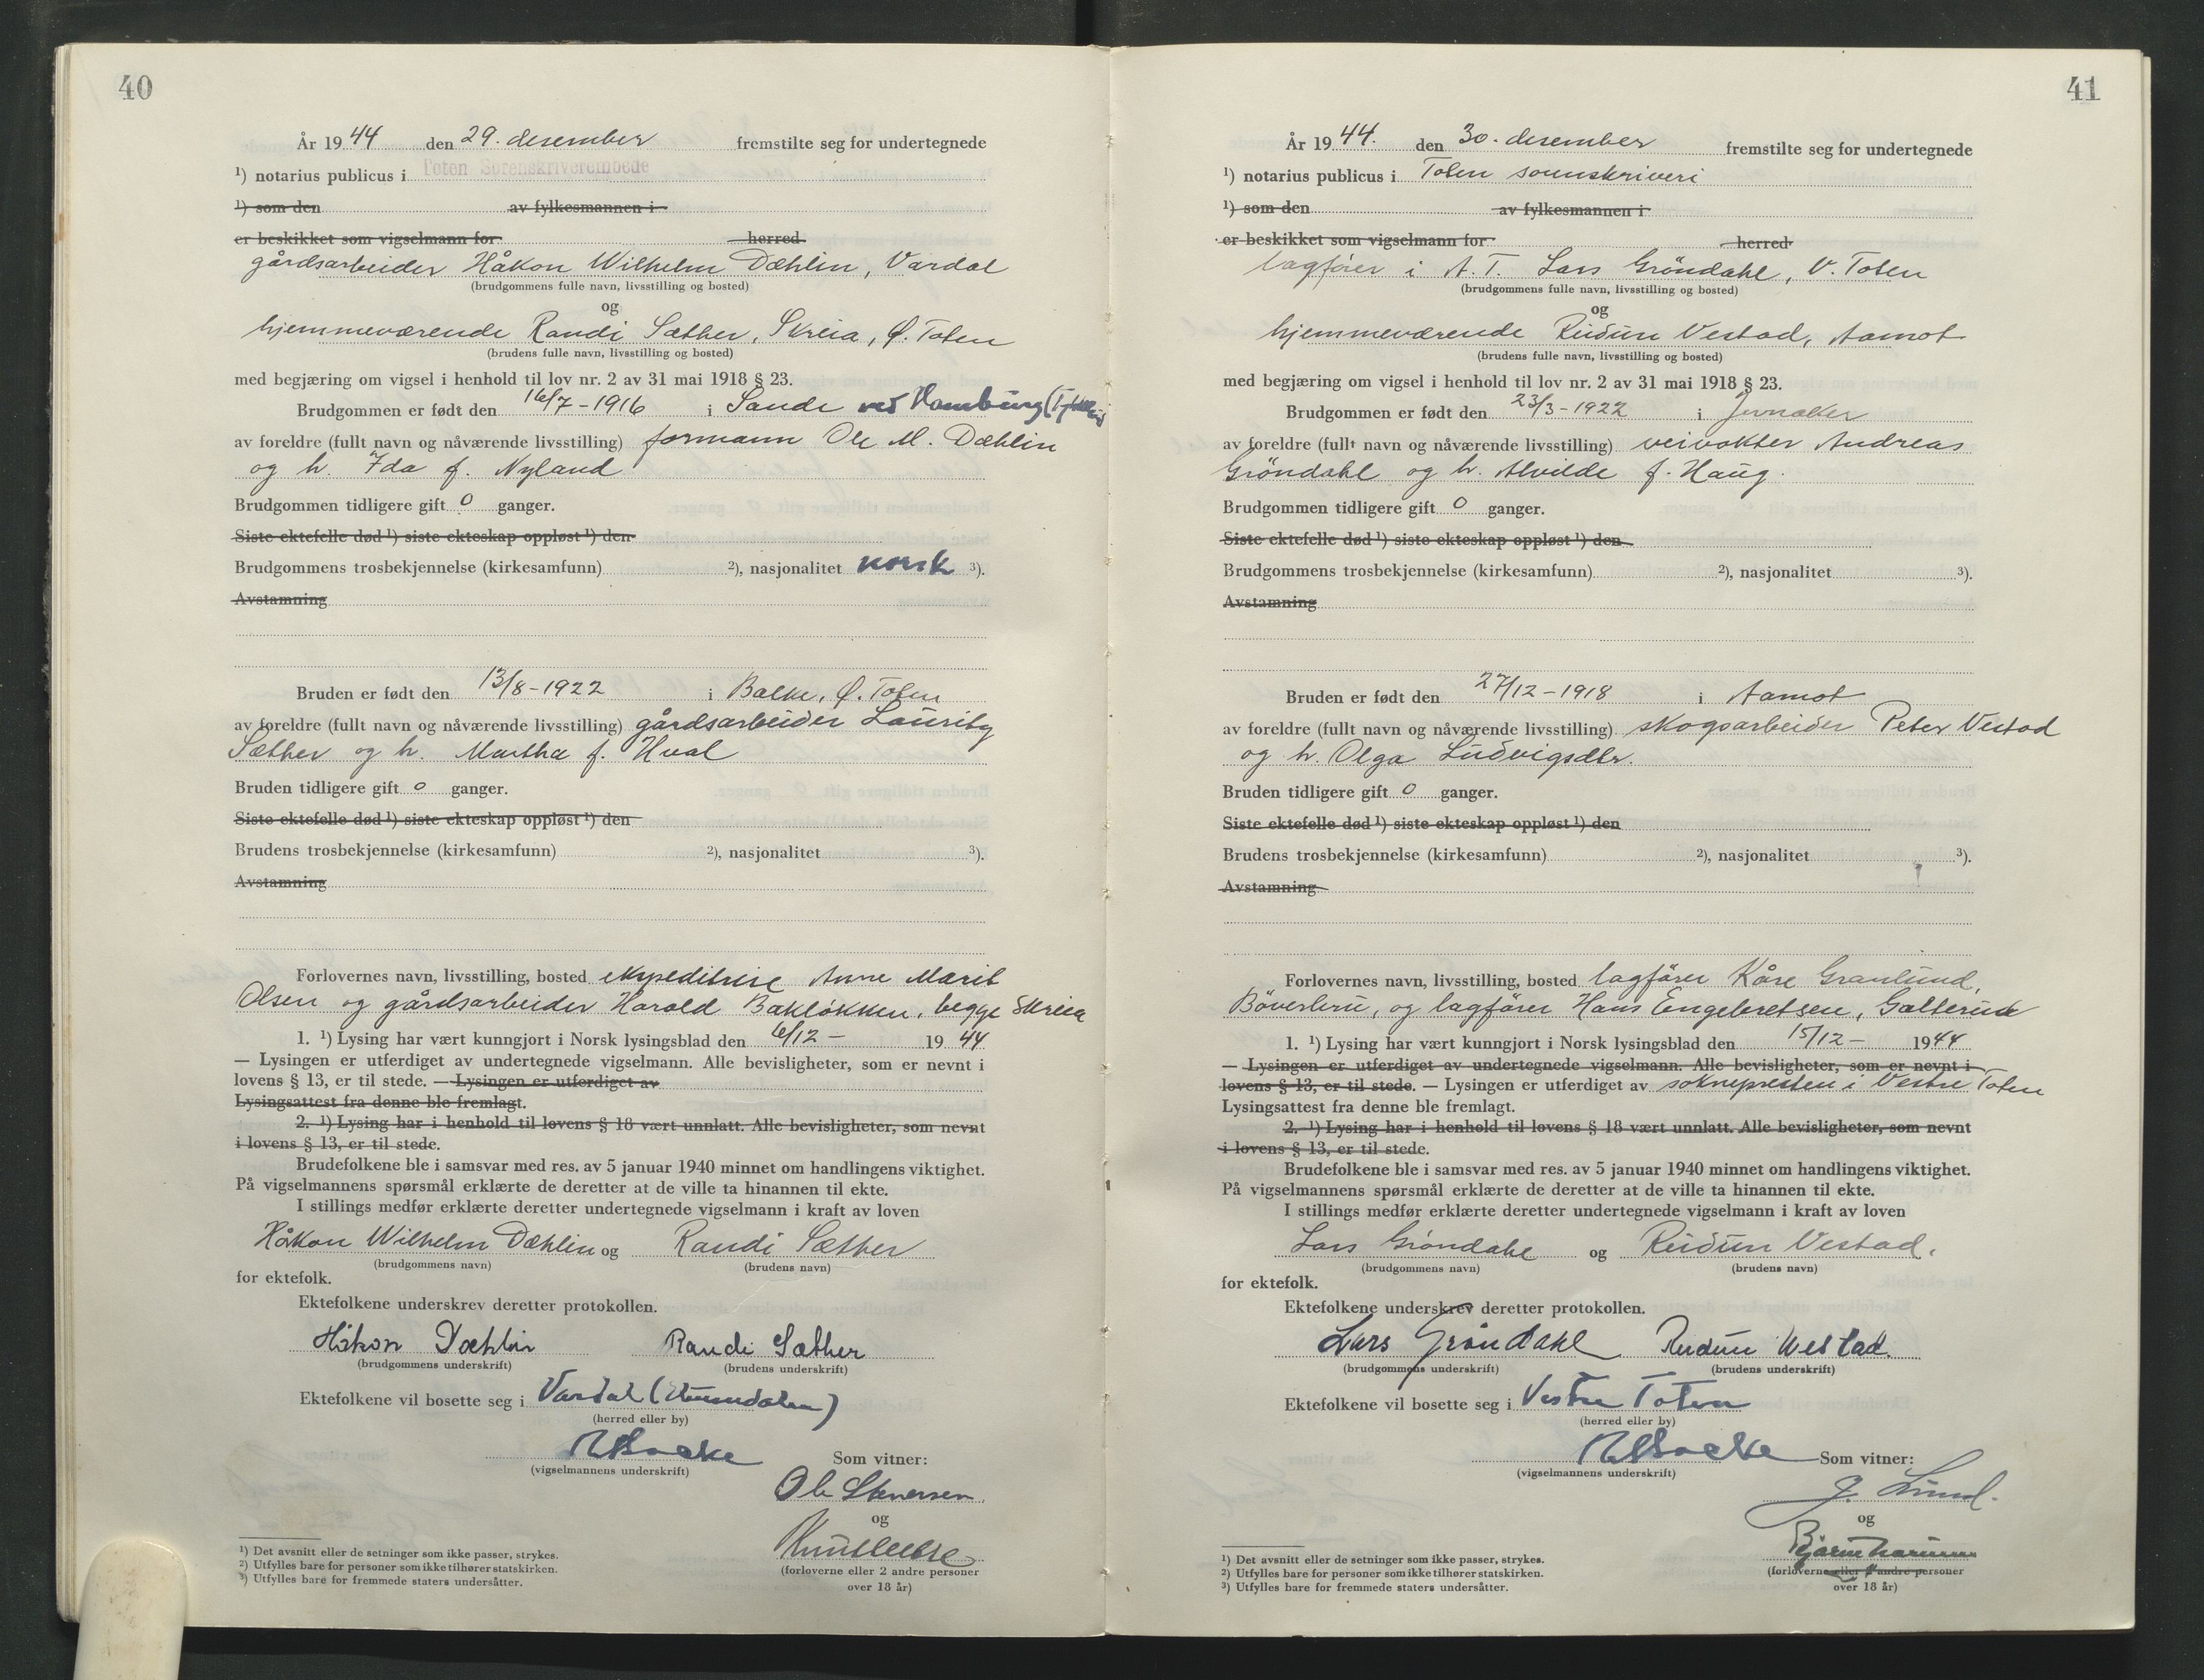 40
År 1944 den 29. desember fremstilte seg for undertegnede
¹) notarius publicus i Toten Sorenskriverembede
¹) som den av fylkesmannen i
er beskikket som vigselmann for herred
gårdsarbeider Håkon Wilhelm Dæhlin, Vardal
(brudgommens fulle navn, livsstilling og bosted)
og
hjemmeværende Randi Sæther, Skreia, Ø. Toten
(brudens fulle navn, livsstilling og bosted)
med begjæring om vigsel i henhold til lov nr. 2 av 31 mai 1918 § 23.
Brudgommen er født den 16/7 - 1916 i Sande ved Hamburg
av foreldre (fullt navn og nåværende livsstilling) formann Ole M. Dæhlin
og h. Ida f. Nyland
Brudgommen tidligere gift 0 ganger.
Siste ektefelle død ¹) siste ekteskap oppløst ¹) den
Brudgommens trosbekjennelse (kirkesamfunn) ²), nasjonalitet norsk ³).
Avstamning
Bruden er født den 13/8 - 1922 i Balke, Ø. Toten
av foreldre (fullt navn og nåværende livsstilling) gårdsarbeider Lauritz
Sæther og h. Martha f. Hval
Bruden tidligere gift 0 ganger.
Siste ektefelle død ¹) siste ekteskap oppløst ¹) den
Brudens trosbekjennelse (kirkesamfunn) ²), nasjonalitet ³).
Avstamning
Forlovernes navn, livsstilling, bosted ekspeditrise Anne Marit
Olsen og gårdsarbeider Harald Bakløkken, begge Skreia
1. ¹) Lysing har vært kunngjort i Norsk lysingsblad den 6/12 - 1944
— Lysingen er utferdiget av undertegnede vigselmann. Alle bevisligheter, som er nevnt i
lovens § 13, er til stede. — Lysingen er utferdiget av
Lysingsattest fra denne ble fremlagt.
2. ¹) Lysing har i henhold til lovens § 18 vært unnlatt. Alle bevisligheter, som nevnt
i lovens § 13, er til stede.
Brudefolkene ble i samsvar med res. av 5 januar 1940 minnet om handlingens viktighet.
På vigselmannens spørsmål erklærte de deretter at de ville ta hinannen til ekte.
I stillings medfør erklærte deretter undertegnede vigselmann i kraft av loven
Håkon Wilhelm Dæhlin og Randi Sæther
(brudgommens navn) (brudens navn)
for ektefolk.
Ektefolkene underskrev deretter protokollen.
Håkon Dæhlin Randi Sæther
(brudgommens underskrift) (brudens underskrift)
Ektefolkene vil bosette seg i Vardal
(herred eller by)
Som vitner:
(vigselmannens underskrift)
Ole Stenersen
og
(forloverne eller 2 andre personer
over 18 år)
¹) Det avsnitt eller de setninger som ikke passer, strykes.
²) Utfylles bare for personer som ikke tilhører statskirken.
³) Utfylles bare for fremmede staters undersåtter.
41
År 1944. den 30. desember fremstilte seg for undertegnede
¹) notarius publicus i Toten sorenskriveri
¹) som den av fylkesmannen i
er beskikket som vigselmann for herred
lagfører i A. T. Lars Gröndahl, V. Toten
(brudgommens fulle navn, livsstilling og bosted)
og
hjemmeværende Reidun Vestad, Aamot
(brudens fulle navn, livsstilling og bosted)
med begjæring om vigsel i henhold til lov nr. 2 av 31 mai 1918 § 23.
Brudgommen er født den 23/3 - 1922 i Jevnaker
av foreldre (fullt navn og nåværende livsstilling) veivokter Andreas
Gröndahl og h. Alvilde f. Haug.
Brudgommen tidligere gift 0 ganger.
Siste ektefelle død ¹) siste ekteskap oppløst ¹) den
Brudgommens trosbekjennelse (kirkesamfunn) ²), nasjonalitet ³).
Avstamning
Bruden er født den 27/12 - 1918 i Aamot
av foreldre (fullt navn og nåværende livsstilling) skogsarbeider Peter Vestad
og h. Olga Ludvigsdtr.
Bruden tidligere gift 0 ganger.
Siste ektefelle død ¹) siste ekteskap oppløst ¹) den
Brudens trosbekjennelse (kirkesamfunn) ²), nasjonalitet ³).
Avstamning
Forlovernes navn, livsstilling, bosted lagfører Kåre Granlund,
Böverbru, og lagfører Hans Engebretsen, Galterud
1. ¹) Lysing har vært kunngjort i Norsk lysingsblad den 15/12 - 1944
— Lysingen er utferdiget av undertegnede vigselmann. Alle bevisligheter, som er nevnt i
lovens § 13, er til stede. — Lysingen er utferdiget av soknepresten i Vestre Toten
Lysingsattest fra denne ble fremlagt.
2. ¹) Lysing har i henhold til lovens § 18 vært unnlatt. Alle bevisligheter, som nevnt
i lovens § 13, er til stede.
Brudefolkene ble i samsvar med res. av 5 januar 1940 minnet om handlingens viktighet.
På vigselmannens spørsmål erklærte de deretter at de ville ta hinannen til ekte.
I stillings medfør erklærte deretter undertegnede vigselmann i kraft av loven
Lars Gröndahl og Reidun Vestad.
(brudgommens navn) (brudens navn)
for ektefolk.
Ektefolkene underskrev deretter protokollen.
Lars Gröndahl Reidun Westad.
(brudgommens underskrift) (brudens underskrift)
Ektefolkene vil bosette seg i Vestre Toten
(herred eller by)
Som vitner:
(vigselmannens underskrift)
J. Lund.
og
(forloverne eller 2 andre personer
over 18 år)
¹) Det avsnitt eller de setninger som ikke passer, strykes.
²) Utfylles bare for personer som ikke tilhører statskirken.
³) Utfylles bare for fremmede staters undersåtter.